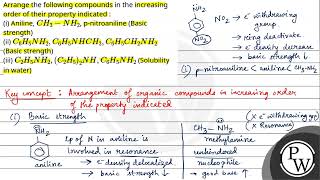 Arrange the following compounds in the increasing
order of their property indicated :
(i) Aniline, CH₃ − NH₂, p-nitroaniline (Basic
strength)
(ii) C₆H₅NH₂, C₆H₅NHCH₃, C₆H₅CH₂NH₂
(Basic strength)
(iii) C₂H₅NH₂, (C₂H₅)₂NH, C₆H₅NH₂ (Solubility
in water)
NH₂
NO₂
→ e⁻ withdrawing
group
→ ring deactivate
→ e⁻ density decrease
→ basic strength ↓
1) p-nitroaniline < aniline < CH₃-NH₂
Key concept : Arrangement of organic compounds in increasing order
of the property indicated
(i) Basic strength
N̈H₂
aniline
lp of N in aniline is
involved in resonance
→ e⁻ density delocalized
→ basic strength ↓
CH₃ − N̈H₂
methylamine
unhindered
nucleophile
→ good base ↑
(× e⁻ withdrawing
(× Resonance)
PW